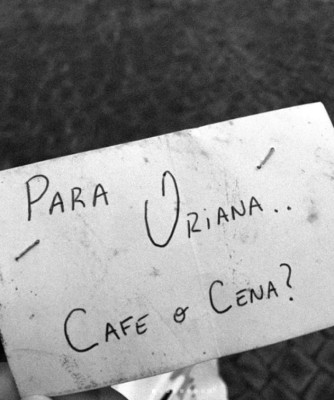 PARA ORIANA..
CAFE o CENA?